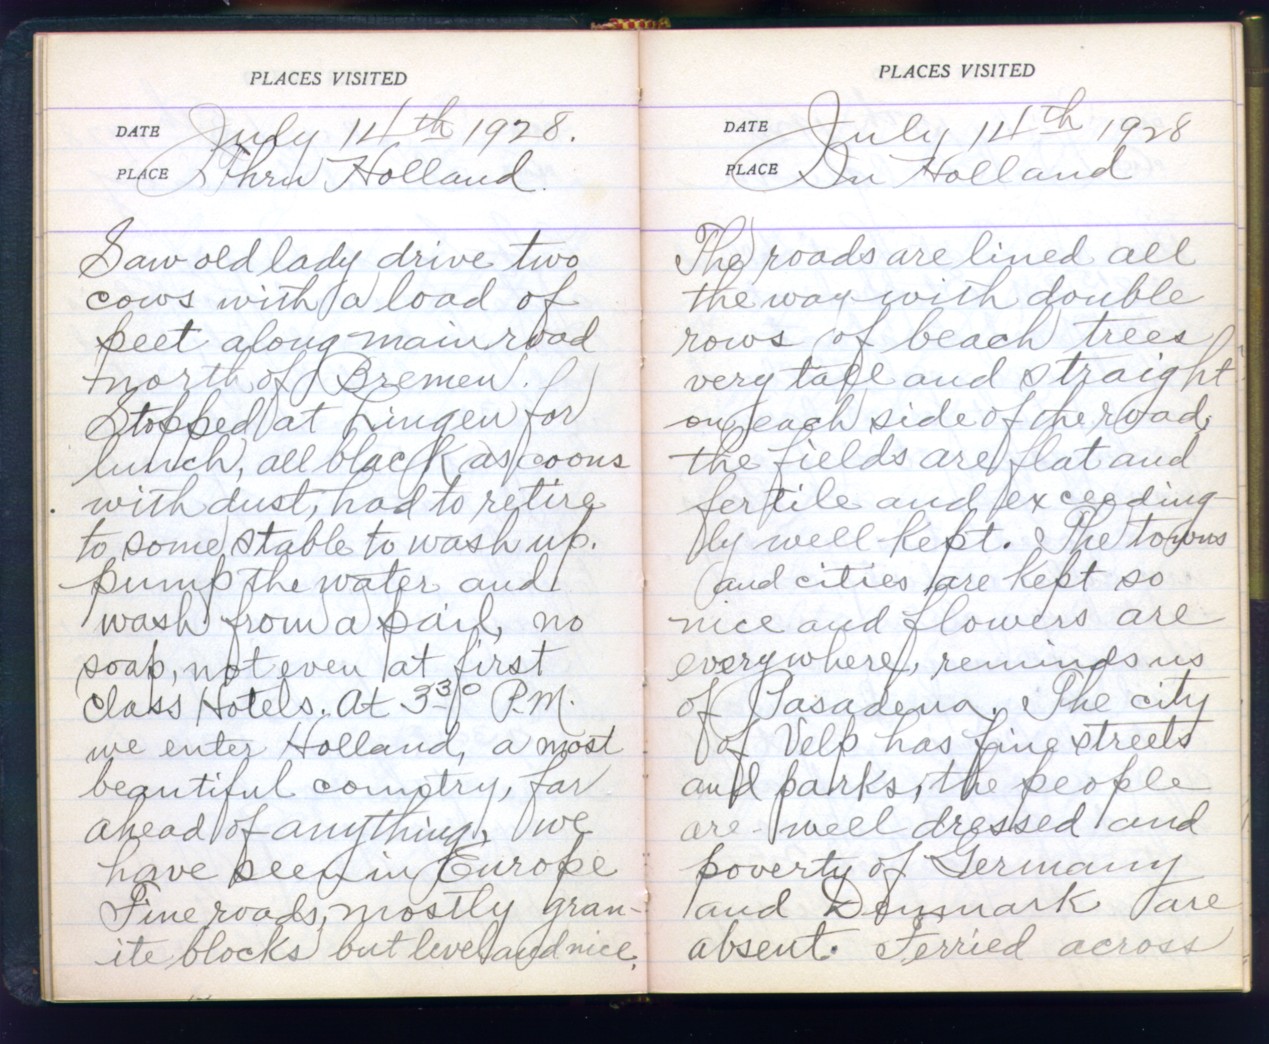 PLACES VISITED
DATE July 14th 1928.
PLACE Thru Holland.
Saw old lady drive two
cows with a load of
peet along main road
north of Bremen.
Stopped at Lingen for
lunch, all black as coons
with dust, had to retire
to some stable to wash up.
pump the water and
wash from a pail, no
soap, not even at first
Class Hotels. At 3 30 P.M.
we enter Holland, a most
beautiful country, far
ahead of anything, we
have seen in Europe
Fine roads, mostly gran-
ite blocks but level and nice.
PLACES VISITED
DATE July 14th 1928
PLACE In Holland
The roads are lined all
the way with double
rows of beach trees
very tall and straight
on each side of the road,
the fields are flat and
fertile and exceeding-
ly well kept. The towns
and cities are kept so
nice and flowers are
everywhere, reminds us
of Pasadena. The city
of Velp has fine streets
and parks, the people
are well dressed and
poverty of Germany
and Denmark are
absent. Ferried across